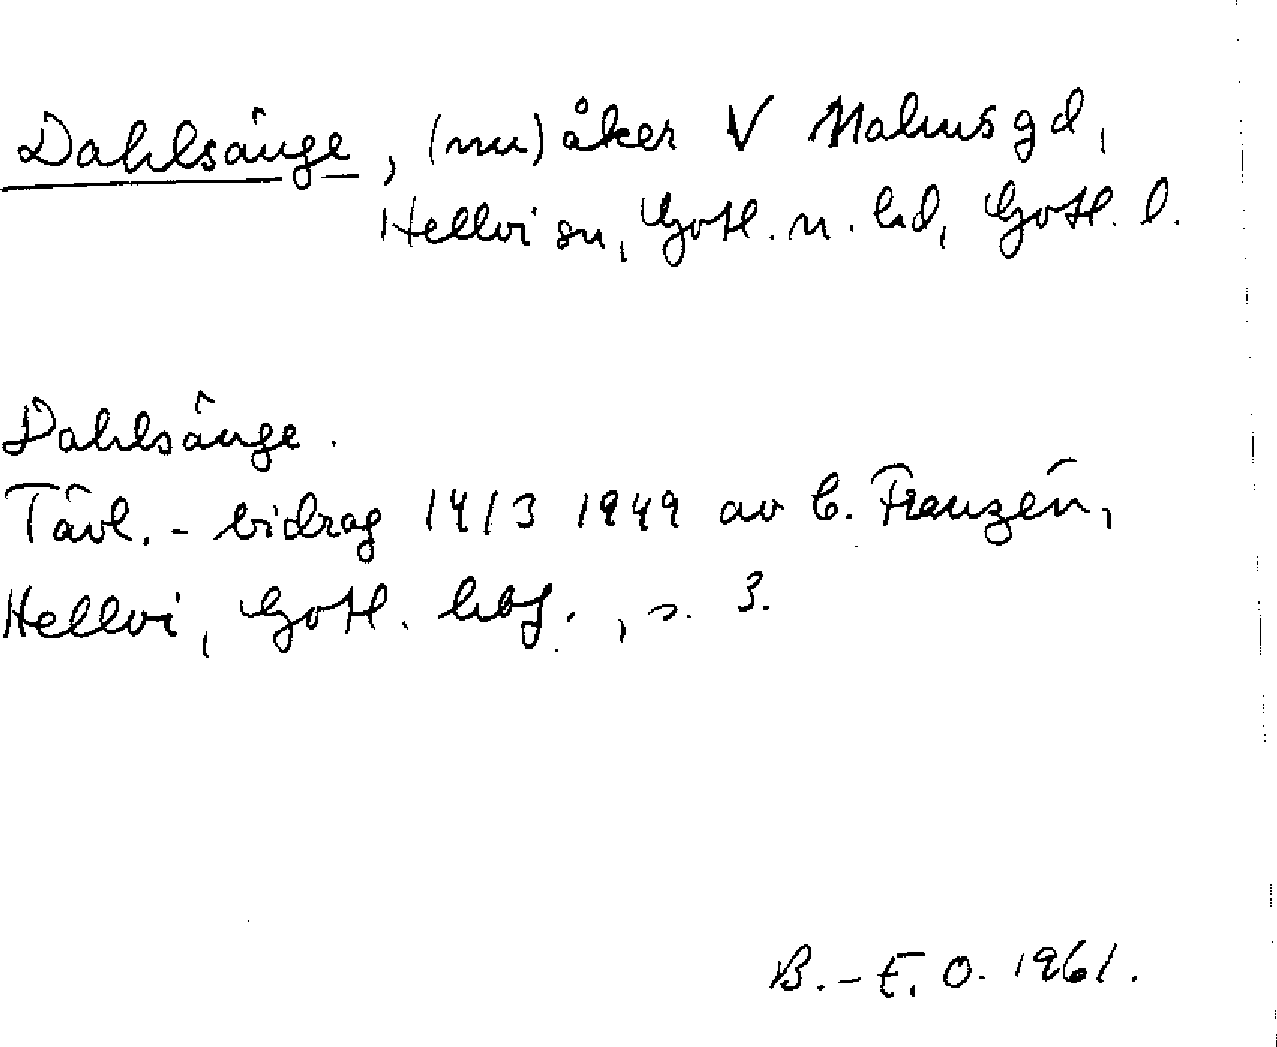 Dahlsänge, (nu) åker V Malmsgd,
Hellvi sn, Gotl. n. hd, Gotl. l.
Dahlsänge.
Tävl.-bidrag 14/3 1949 av C. Franzén,
Hellvi, Gotl. hbf., s. 3.
B.-E. O. 1961.